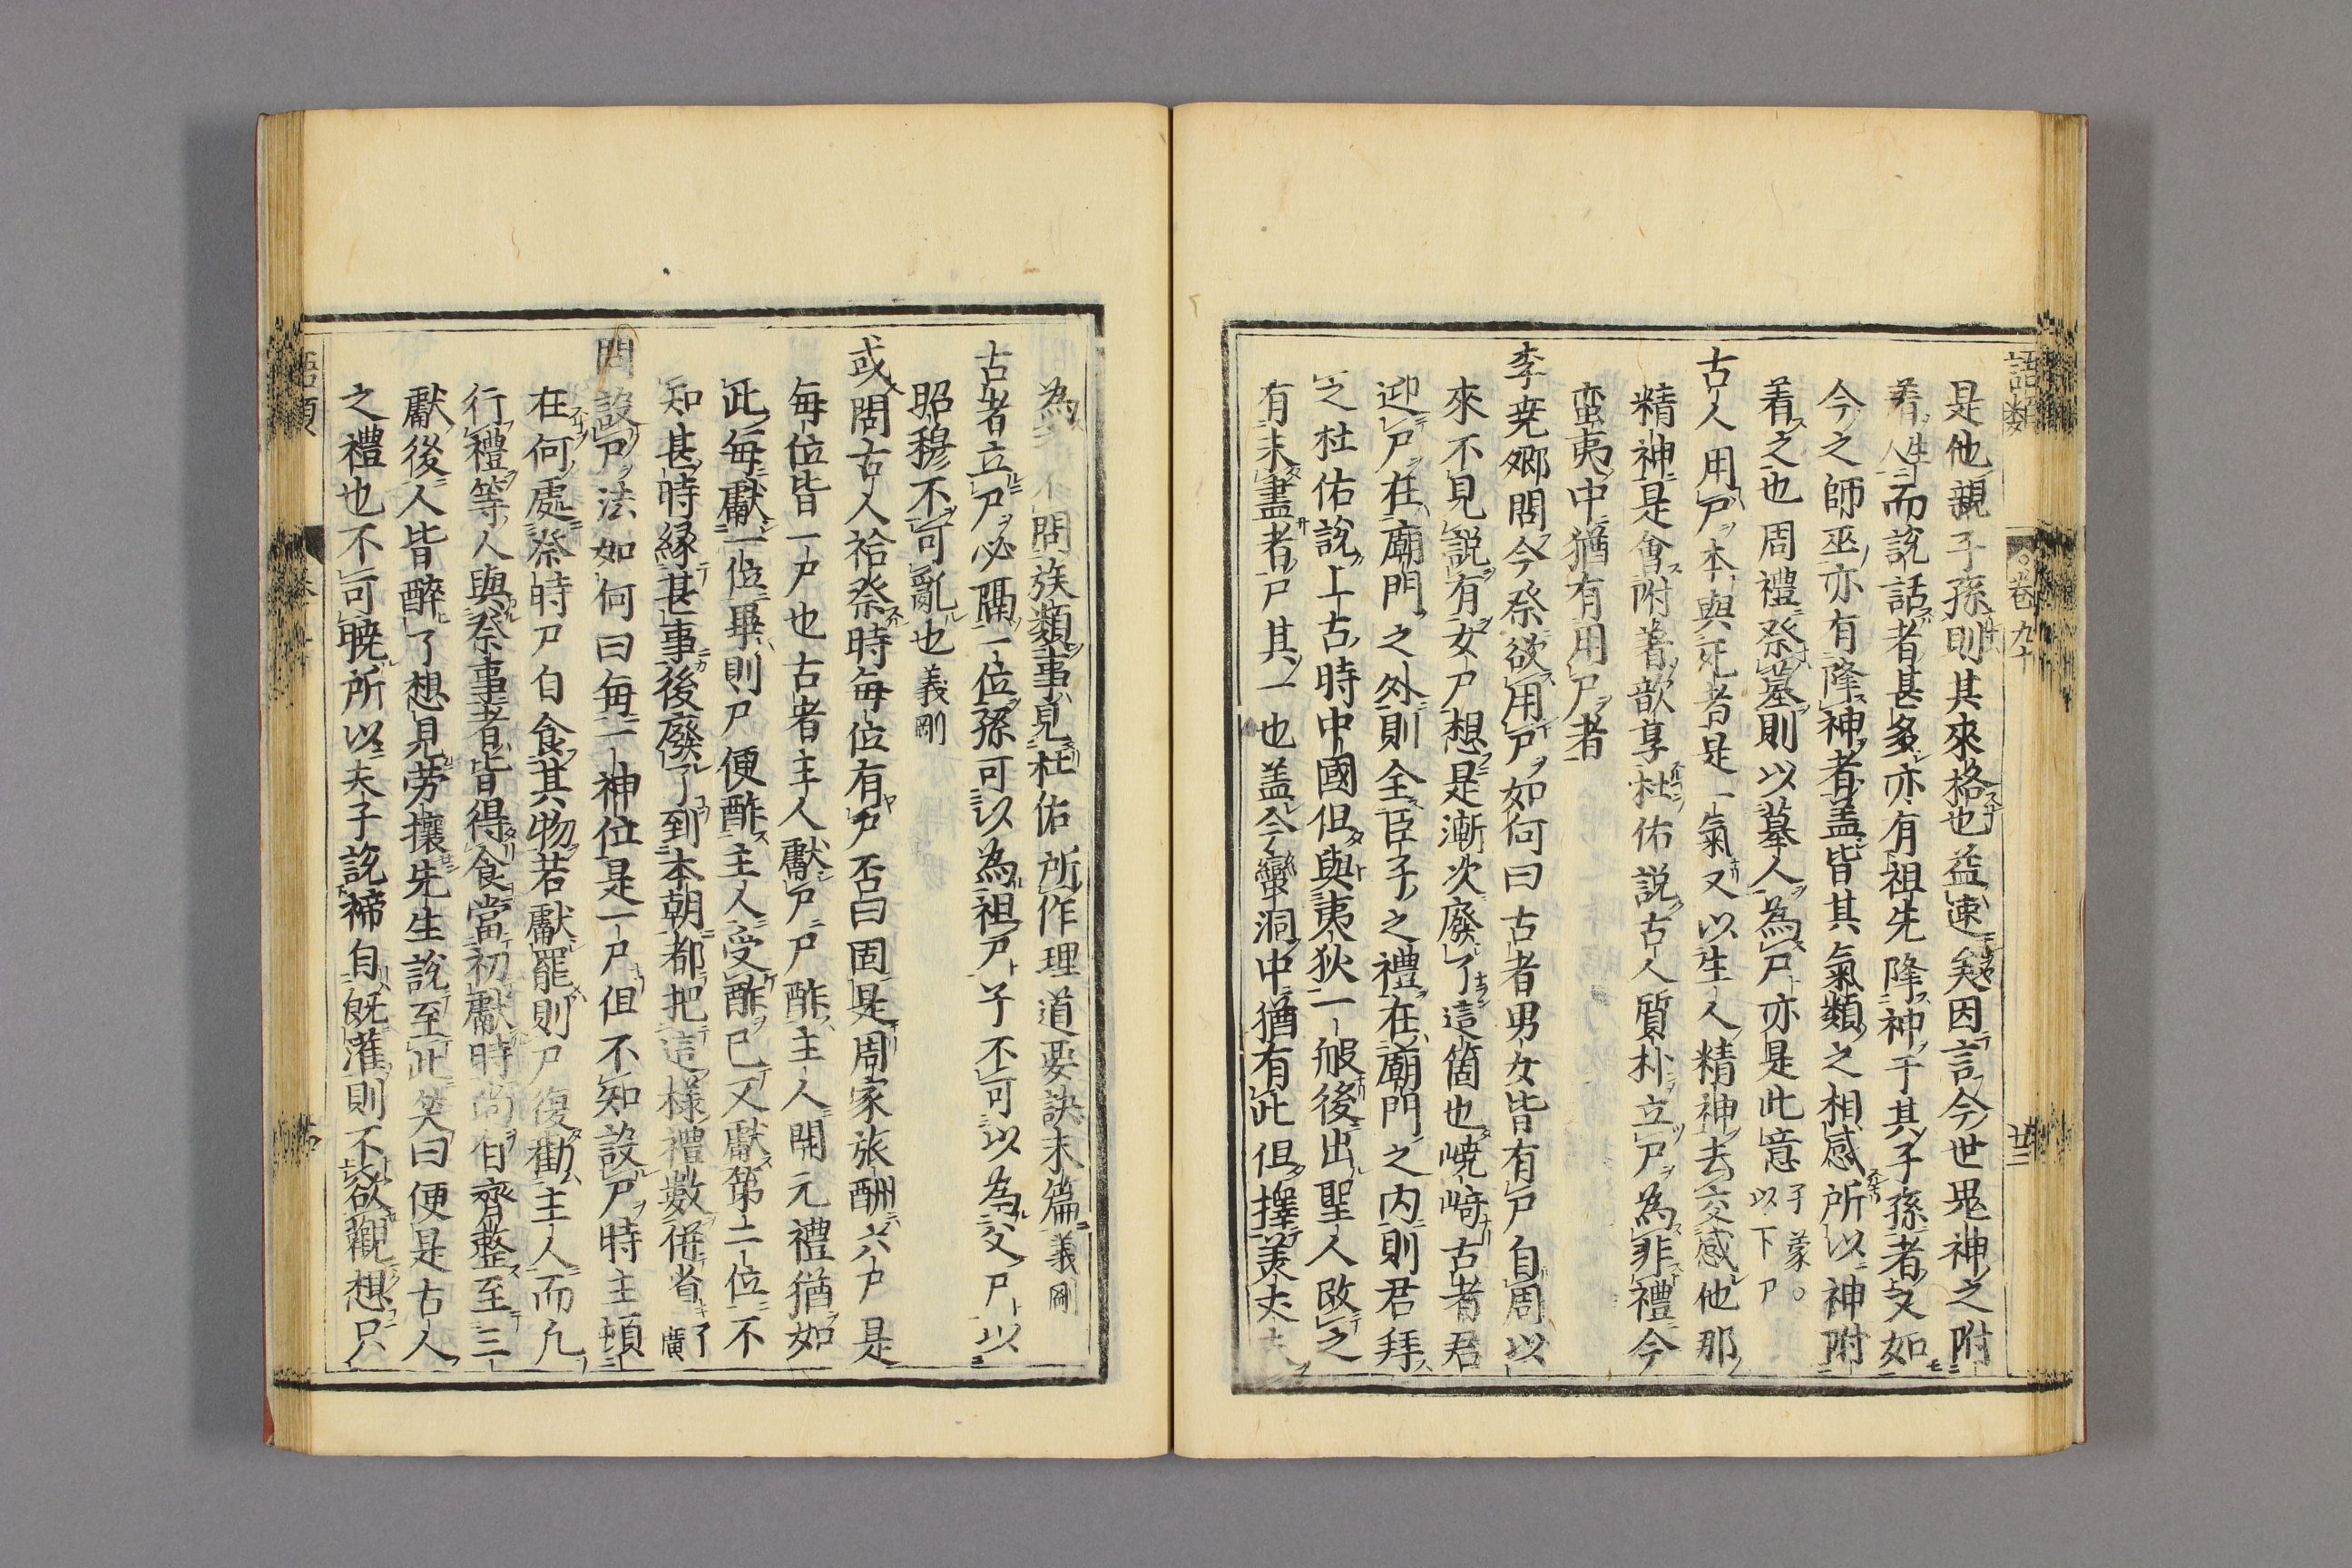 語類 卷九十 廿二
是他親子孫則其來格也益速矣因言今世鬼神之附
着生人而說話者甚多亦有祖先降神于其子孫者又如
今之師巫亦有降神者蓋皆其氣類之相感所以神附
着之也周禮祭墓則以墓人為尸亦是此意子蒙○以下尸
古人用尸本與死者是一氣又以生人精神去交感他那
精神是會附着歆享杜佑說古人質朴立尸為非禮今
蛮夷中猶有用尸者
李堯卿問今祭欲用尸如何曰古者男女皆有尸自周以
來不見說有女尸想是漸次廢了這箇也嶢崎古者君
迎尸在廟門之外則全臣子之禮在廟門之内則君拜
之杜佑說上古時中國但與夷狄一般後出聖人改之
有未盡者尸其一也蓋今蠻洞中猶有此但擇美丈夫
為 不問族類事見杜佑所作理道要訣末篇義剛
古者立尸必隔一位孫可以為祖尸子不可以為父尸以
昭穆不可亂也義剛
或問古人祫祭時每位有尸否曰固是周家旅酬六尸是
每位皆一尸也古者主人獻尸尸酢主人開元禮猶如
此每獻一位畢則尸便酢主人受酢已又獻第二位不
知甚時緣甚事後廢了到本朝都把這樣禮數併省了廣
問設尸法如何曰每一神位是一尸但不知設尸時主頓
在何處祭時尸自食其物若獻罷則尸復勸主人而凡
行禮等人與祭事者皆得食當初獻時尚自齊整至三
獻後人皆醉了想見勞攘先生說至此笑曰便是古人
之禮也不可曉所以夫子說禘自既灌則不欲觀想只
語類